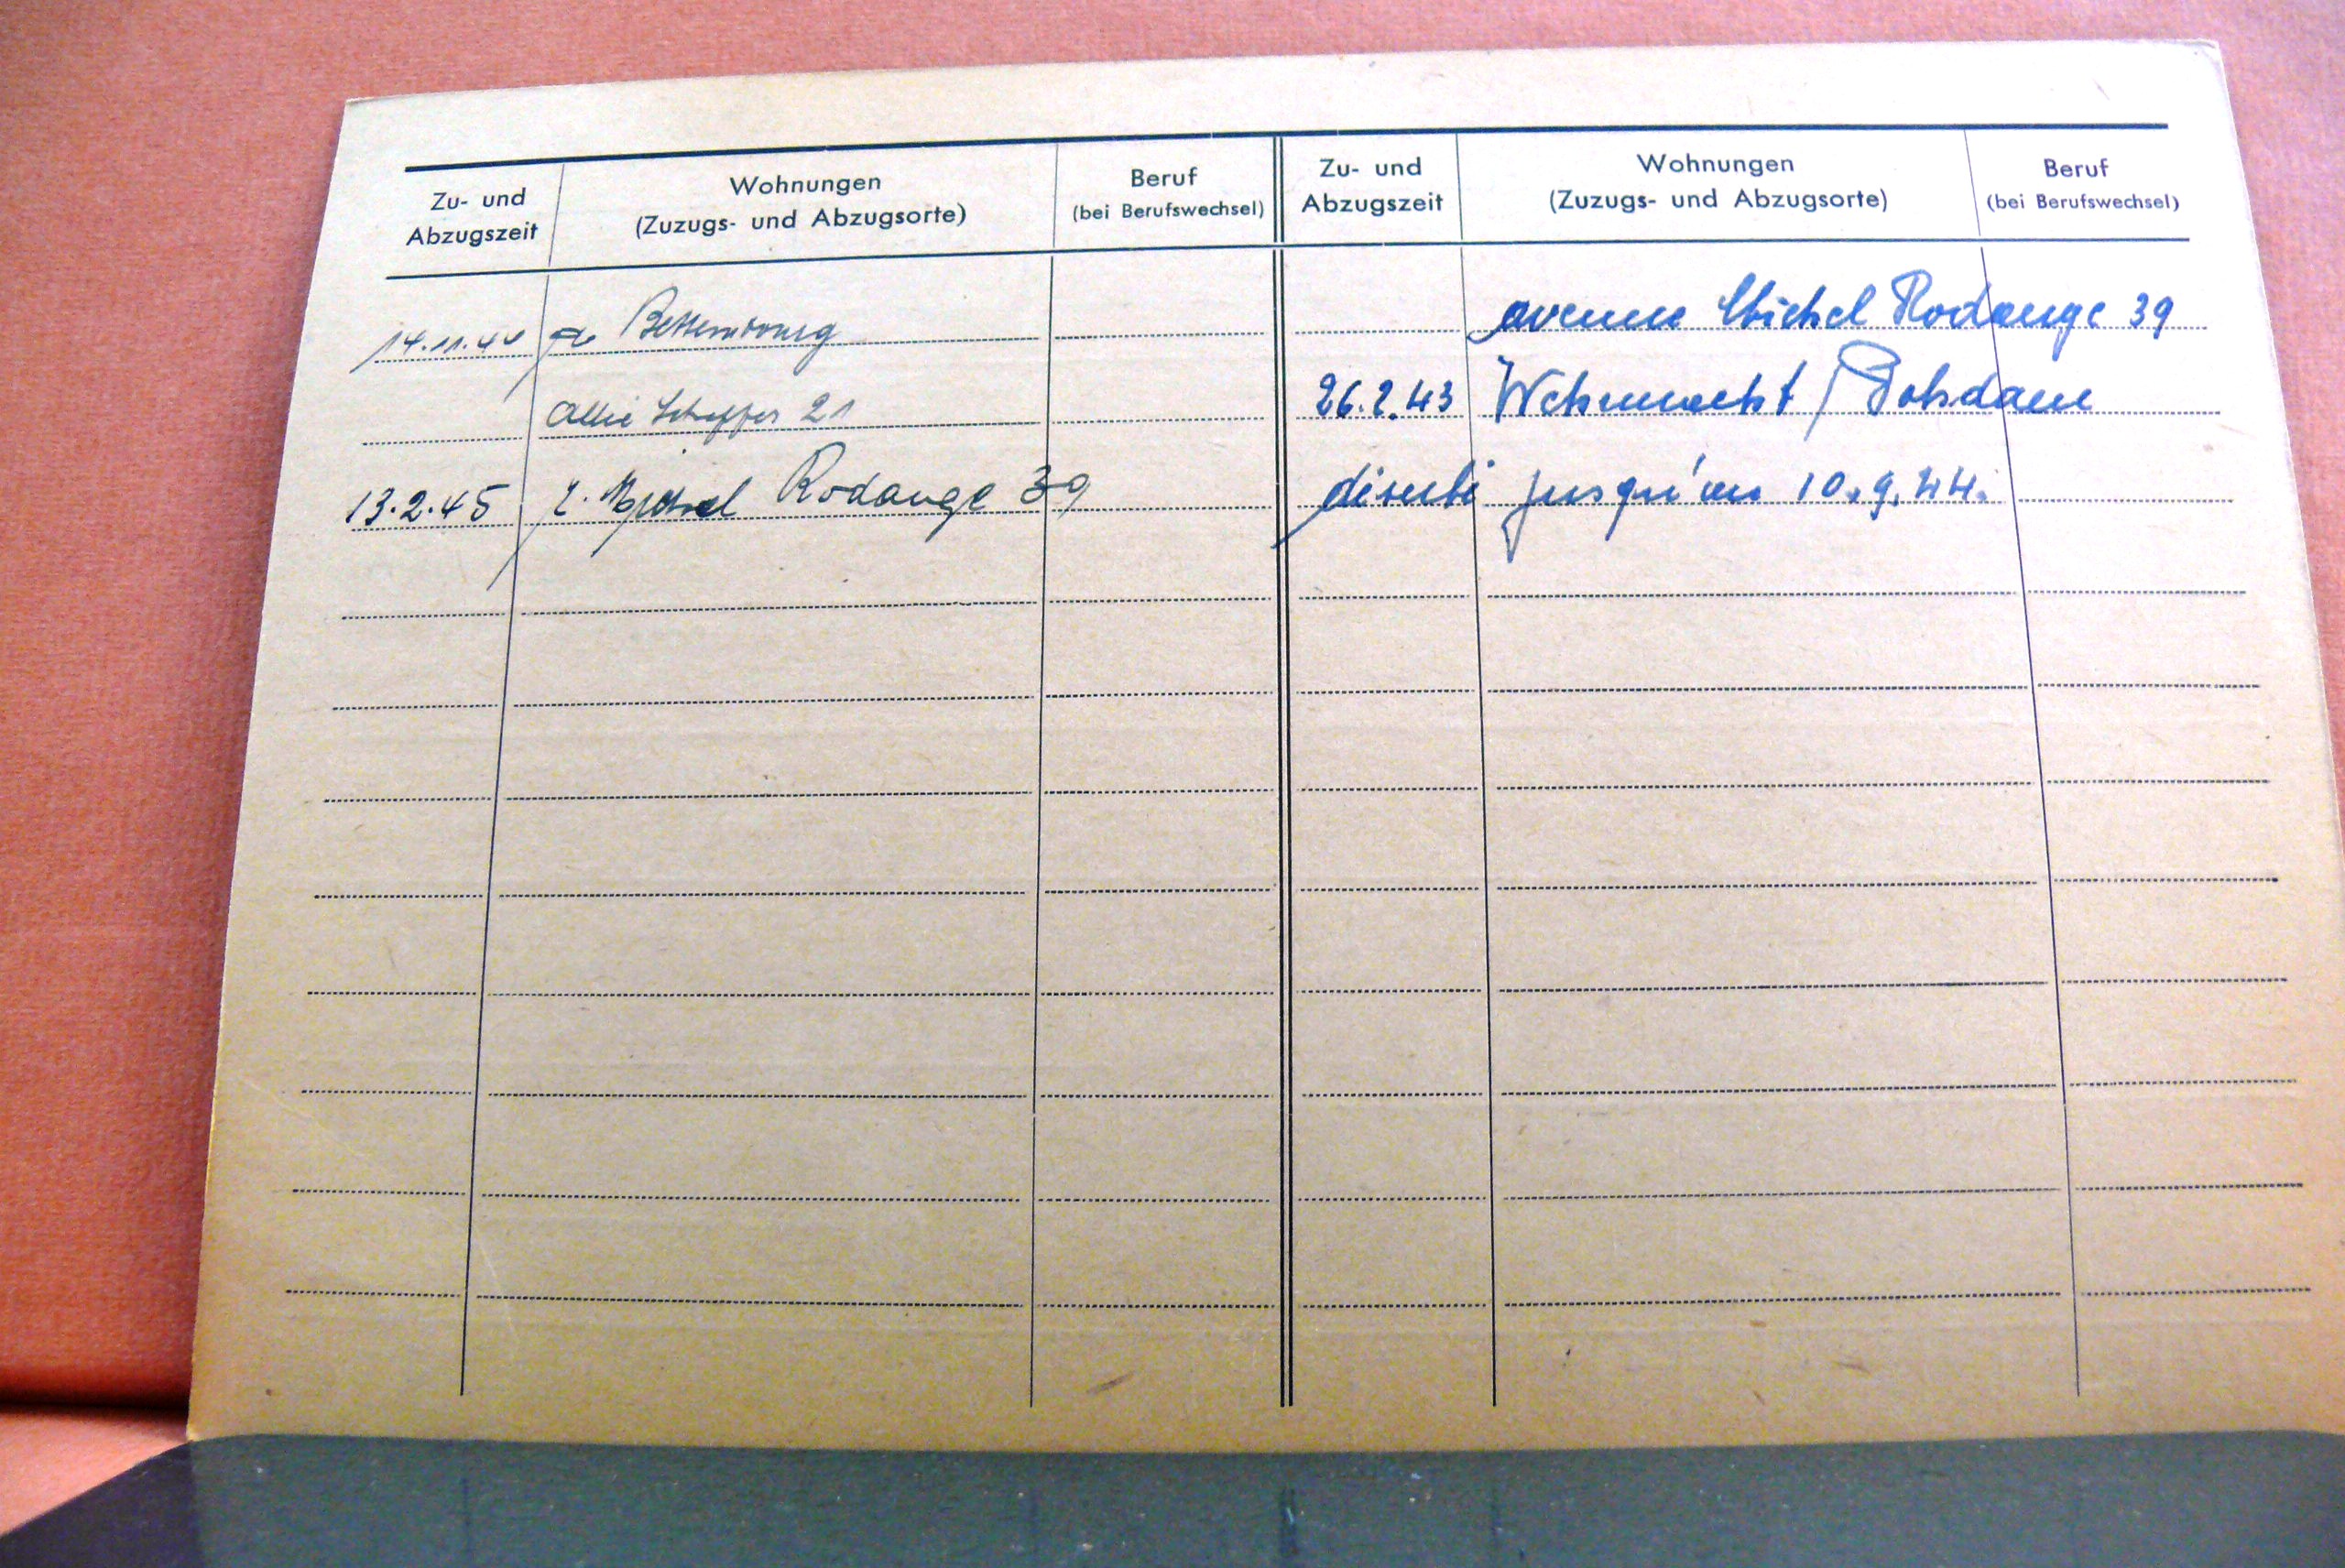 Zu- und Abzugszeit
Wohnungen (Zuzugs- und Abzugsorte)
Beruf (bei Berufswechsel)
Zu- und Abzugszeit
Wohnungen (Zuzugs- und Abzugsorte)
Beruf (bei Berufswechsel)
14.11.44 Bettembourg
Allée Scheffer 21
13.2.45 r. Michel Rodange 39
avenue Michel Rodange 39
26.2.43 Wehrmacht / Potsdam
jusqu'au 10.9.44.